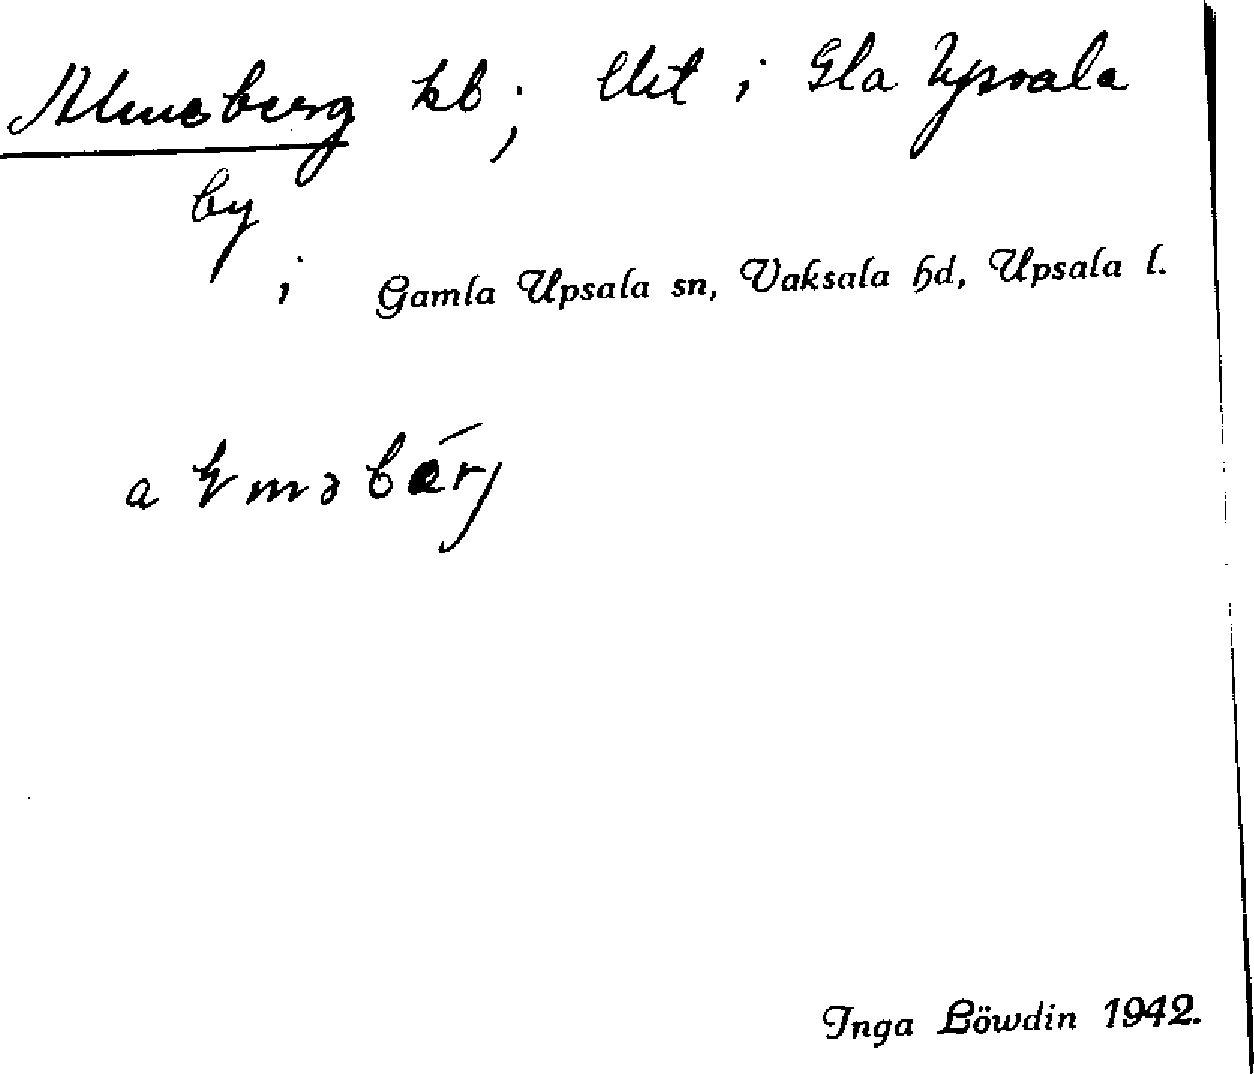 Almeberg i Gla Upsala
by
i Gamla Upsala sn, Vaksala hd, Upsala l.
Inga Löwdin 1942.